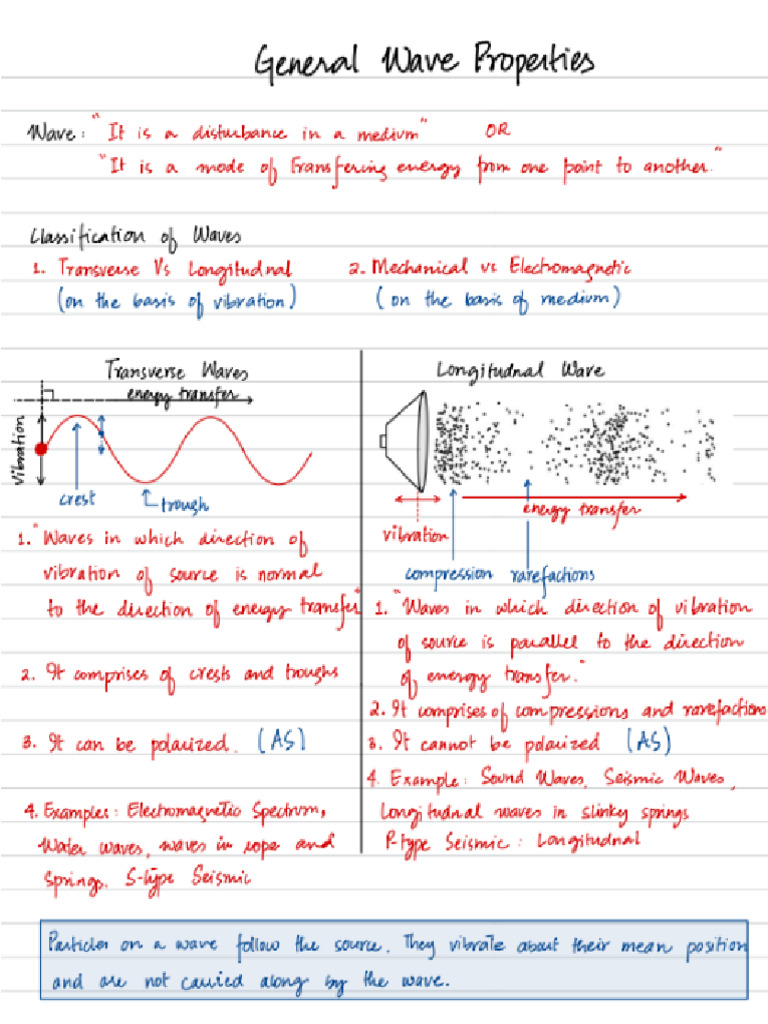 General Wave Properties
Wave: "It is a disturbance in a medium" OR
"It is a mode of transfering energy from one point to another."
Classification of Waves
1. Transverse Vs Longitudnal
(on the basis of vibration)
2. Mechanical vs Electromagnetic
(on the basis of medium)
Transverse Waves
energy transfer
vibration
crest
trough
1. "Waves in which direction of
vibration of source is normal
to the direction of energy transfer"
2. It comprises of crests and troughs
3. It can be polarized. (AS)
4. Examples: Electromagnetic Spectrum,
Water waves, waves in rope and
springs, S-type Seismic
Longitudnal Wave
vibration
energy transfer
compression rarefactions
1. "Waves in which direction of vibration
of source is parallel to the direction
of energy transfer."
2. It comprises of compressions and rarefactions
3. It cannot be polarized (AS)
4. Example: Sound Waves, Seismic Waves,
Longitudnal waves in slinky springs
P-type Seismic: Longitudnal
Particles on a wave follow the source. They vibrate about their mean position
and are not carried along by the wave.